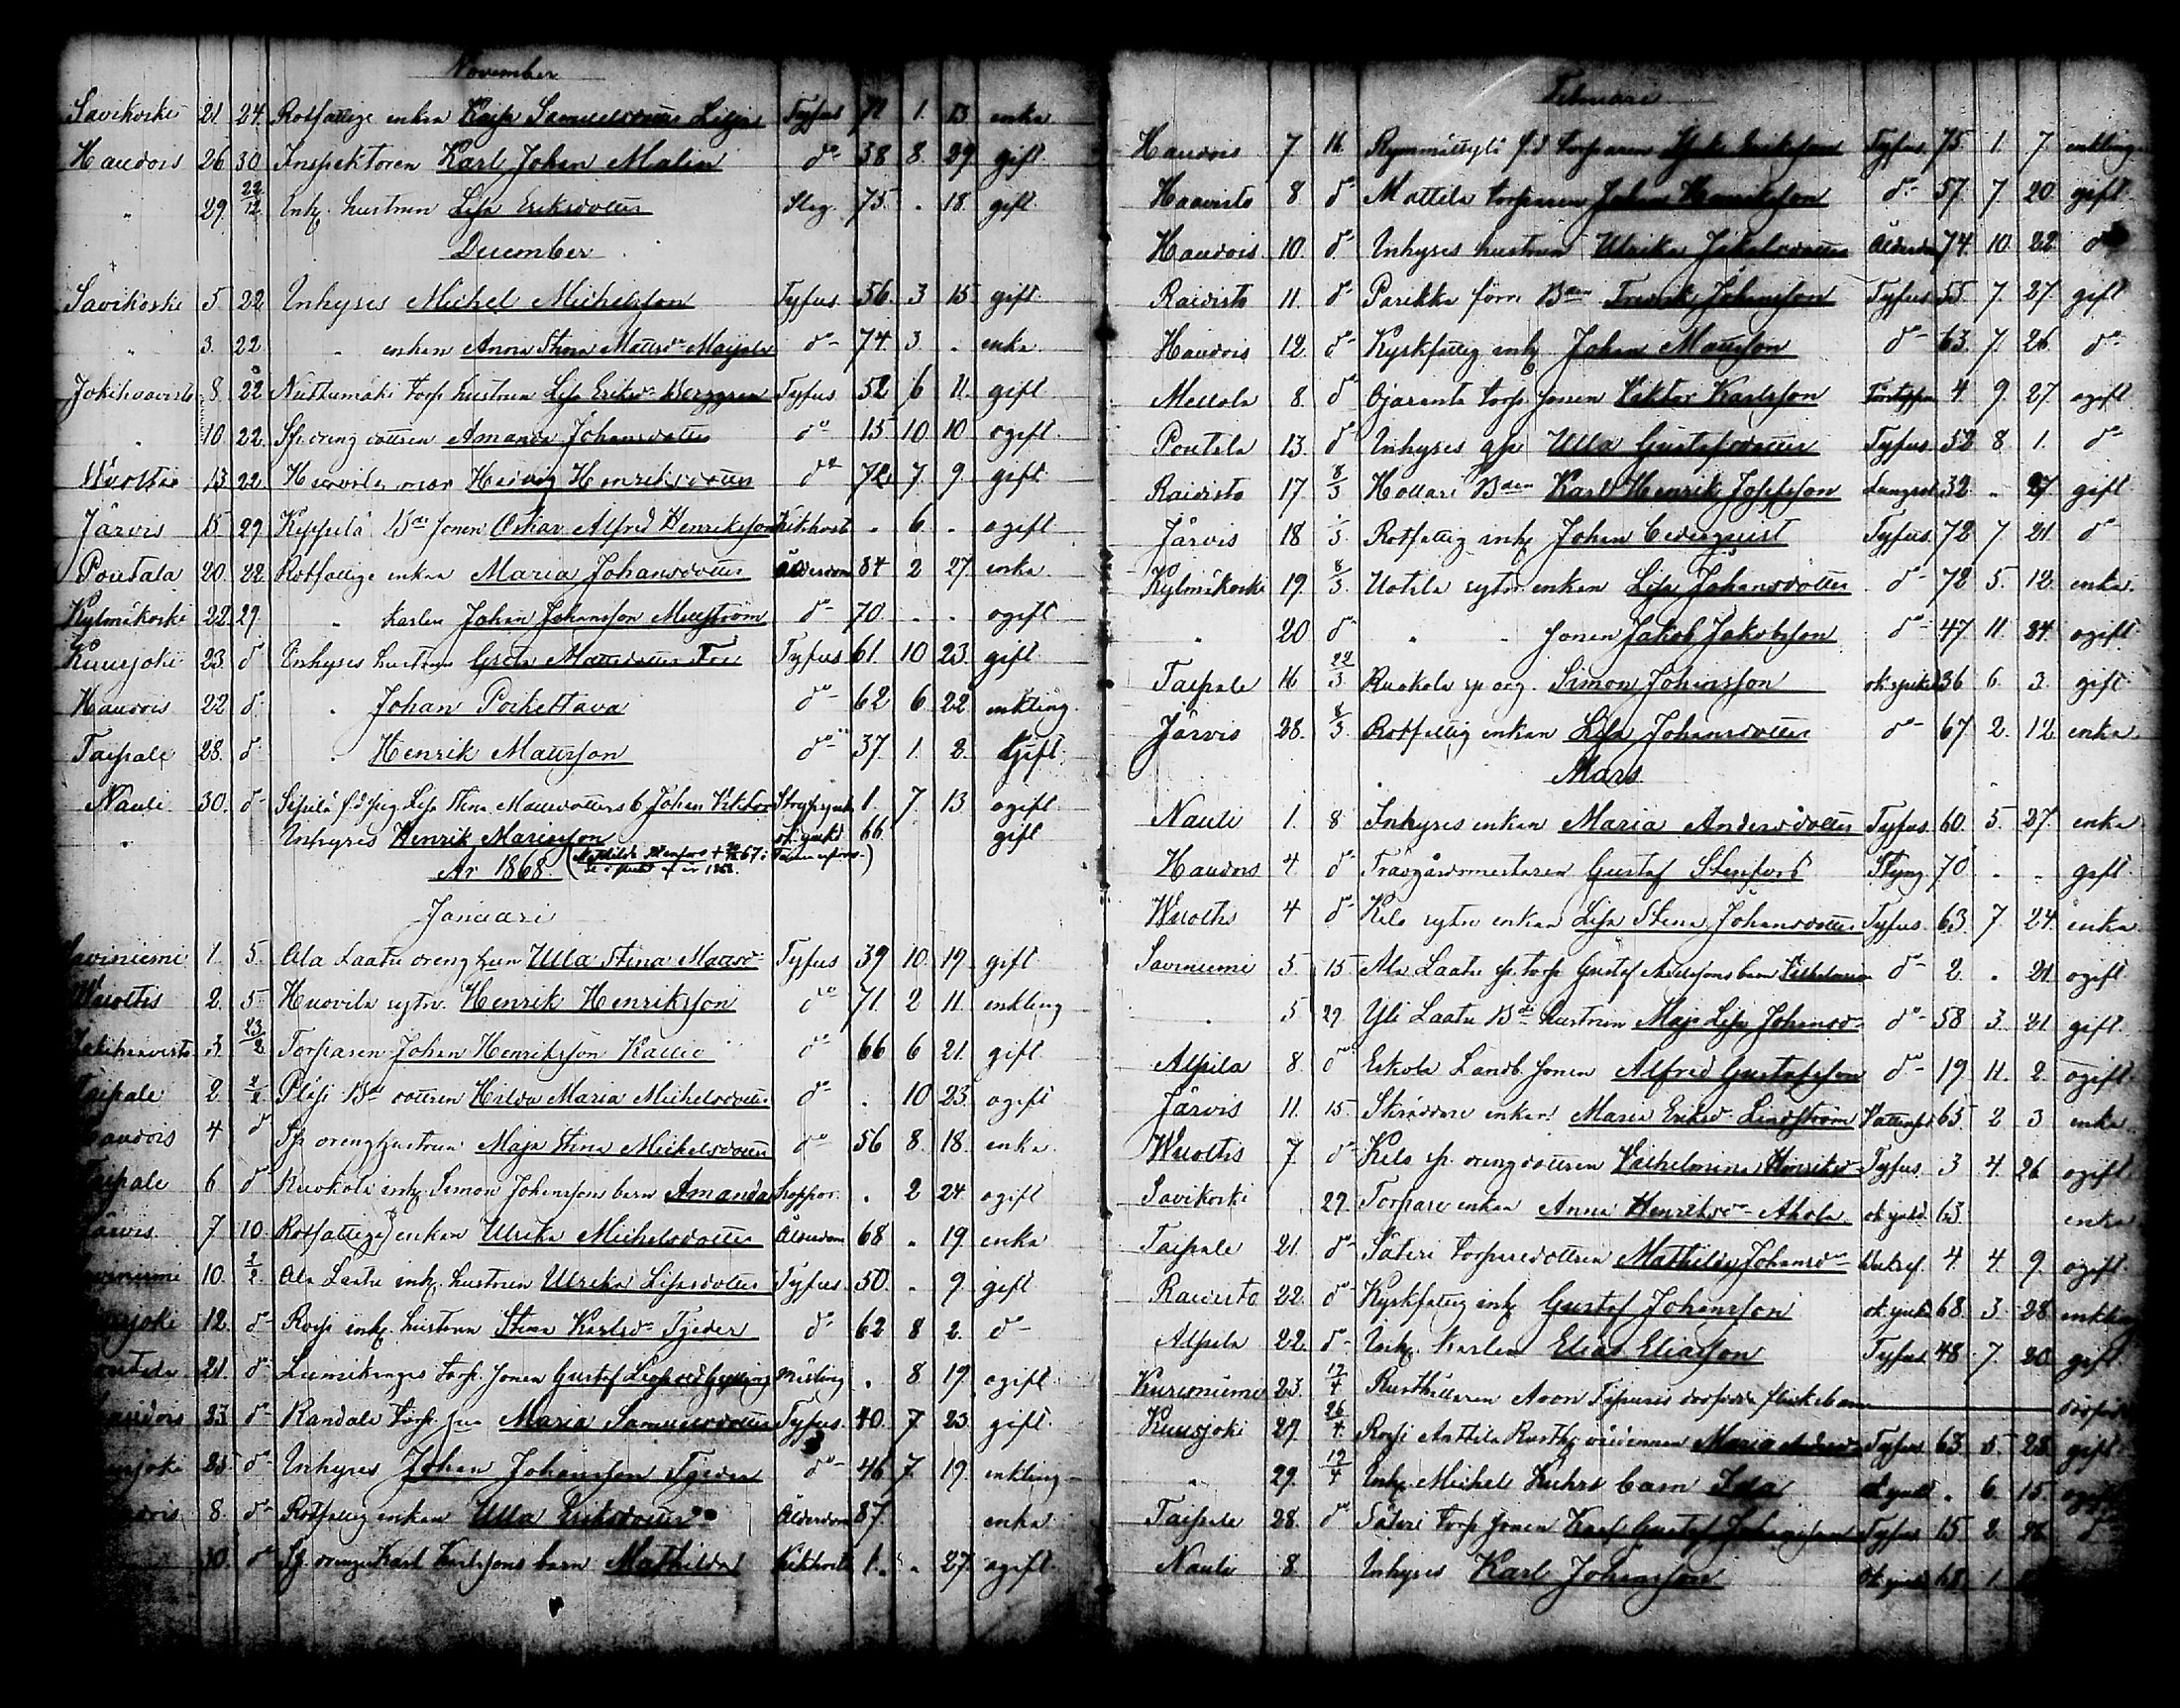 November
Savikoski 21. 24. Rotfattige enkan Kajsa Samuelsdotter Lilja Tyfus 72 1. 13 enka
Haudois 26 30 Inspektoren Karl Johan Malin do 38 8. 29 gift
" 29. 22/12 Inh. hustrun Lisa Eriksdotter Slag. 75 . 18. gift
December
Savikoski 5. 22. Inhyses Michel Michelsson Tyfus 56 3 15 gift
" 3. 22 " enkan Anna Stina Mattsdr Maijala do 74 3 . enka
Jokihaavisto 8. 22 Nuttumäki torp. hustrun Lisa Eriksdr Berggren Tyfus 52 6 11. gift
" 10. 22. Sp. dreng dottren Amanda Johansdotter do 15 10 10 ogift
Wuoltis 13 22 Huovila mor Hedvig Henriksdotter do 72 7. 9 gift
Järvis 15. 29 Keppilä Bde sonen Oskar Alfred Henriksson Kikhosta . 6 . ogift
Poutala 20. 22. Rotfattige enkan Maria Johansdotter ålderdom 84 2 27. enka
Kylmäkoski 22. 29. " karlen Johan Johansson Mellström do 70 . . ogift
Kuurjoki 23. do Inhyses hustrun Greta Mattsdotter Tyfus 61. 10 23. gift
Haudois 22 do " Johan Poikettava do 62 6 22 enkling
Taipale 28. do " Henrik Mattsson do 37 1. 2. Gift
Nauli 30. do Sipilä f.d pig. Lisa Stina Mattsdotters b. Johan Viktor Strypsjuka 1. 7 13 ogift
" Inhyses Henrik Mariasson ok. sjukd 66 gift
År 1868. (Mathilda Stenfors + 67 i Tammerfors.)
Januari
Saviniemi 1. 5. Ala Laatu dreng hun Ulla Stina Mattsdr Tyfus 39 10. 19. gift
Wuoltis 2. 5 Huovila sytn. Henrik Henriksson do 71. 2 11. enkling
Jokihaavisto 3. 23/2 Torparen Johan Henriksson Kallio do 66 6 21. gift
Taipale 2. 2/2 Pläsi Bde dottren Hilda Maria Michelsdotter do . 10 23. ogift
Haudois 4 do Sp drenghustrun Maja Stina Michelsdotter do 56 8. 18. enka
Taipale 6 do Ruokola inh. Simon Johansson barn Amanda koppor . 2 24 ogift
Järvis 7 10 Rotfattige enkan Ulrika Michelsdotter Ålderdom 68 . 19. enka
Saviniemi 10. 2/2. Ala Laatu inh. hustrun Ulrika Lisasdotter Tyfus. 50. . 9. gift
Kuurjoki 12. do Rossi inh. hustrun Stina Karlsdr Tjeder do 62 8 2. do
Poutala 21. do Torp. sonen Gustaf Leopold Gylling Mesling . 8 19. ogift
Haudois 23. do Randala torp. hu Maria Samuelsdotter Tyfus. 40. 7. 23. gift
Kuurjoki 25. do Inhyses Johan Johansson Tjeder do 46 7. 19. enkling
Haudois 8. do Rotfattig enkan Ulla Eriksdotter Ålderdom 87. enka
30. do Sp. drenge Karl Karlssons barn Mathilda Kikhosta 1. . 27. ogift
Februari
Haudois 7 16. f.d torparen Isak Eriksson Tyfus 75 1. 7. enkling
Haavisto 8. do Mattila torparen Johan Henriksson do 57. 7 20. gift
Haudois 10. do Inhyses hustrun Ulrika Jakobsdotter Ålderdom 74. 10. 22 do
Raivisto 11. do Parikka förre Bden Fredrik Johansson Tyfus 55. 7. 27. gift
Haudois 12. do Kyrkfattig inh. Johan Mattsson do 63. 7. 26. do
Mellola 8. do Ojaranta torp. sonen Viktor Karlsson 4. 9. 27. ogift
Poutala 13. do Inhyses Ulla Gustafsdotter Tyfus. 52 8 1. do
Raivisto 17. 8/3 Hollari Bden Karl Henrik Josefsson Lungsot 32. . 27. gift
Järvis 18 /3. Rotfattig inh. Johan Cederquist Tyfus. 72 7 21. do
Kylmäkoski 19. 8/3. Uotila sytn. enkan Lisa Johansdotter do 72 5. 12. enka.
" 20 do " " sonen Jakob Jakobsson do 47. 11. 24. ogift
Taipale 16 22/3. Ruokola sp drg. Simon Johansson ok. sjukd. 36 6. 3. gift
Järvis 28. 8/3. Rotfattig enkan Lisa Johansdotter do 67 2. 12. enka
Mars
Nauli 1. 8 Inhyses enkan Maria Andersdotter Tyfus. 60. 5. 27. enka
Haudois 4 do Trädgårdsmestaren Gustaf Stenfors Styng 70 . . gift
Wuoltis 4 do Kilo sytn enkan Lisa Stina Johansdotter Tyfus. 63 7 24. enka
Saviniemi 5 15 Ala Laatu sp. torp. Gustaf barn Vilhelmina do 2. . 21 ogift
" 5 29. Yli Laatu Bde hustrun Maja Lisa Johansdr do 58 3. 21 gift
Alpila 8. do Eskola Landb. sonen Alfred Gustafsson do 19 11. 2. ogift
Järvis 11. 15. Skräddare enkan Maria Eriksdr Lindström Vattensot 65. 2 3 enka
Wuoltis 7. do Kilo sp. drengdottren Vilhelmina Henriksdr Tyfus. 3 4. 26 ogift
Savikoski 29. Torpare enkan Anna Henriksdr Ahola ok. sjukd. 63. enka
Taipale 21. do Säteri torparedottren Mathilda Johansdr 4. 4. 9. ogift
Raivisto 22. do Kyrkfattig inh. Gustaf Johansson ok sjukd 68. 3. 28. enkling
Alpila 22. do Inh. karlen Elias Eliasson Tyfus 48. 7. 20. gift
Kurisniemi 23. 12/4 Rusthållaren Aron dödfödda flickebarn dödfödd
Kuurjoki 29. 26/4. Rossi Anttila Rusth. värdinnan Maria Andersdr Tyfus 63. 5. 28. gift
" 29. 12/4 Inh. Michel barn Ida ok. sjukd . 6. 15. ogift
Taipale 28. do Säteri torp. sonen Karl Gustaf Johansson Tyfus 15. 2. 26. do
Nauli 8. Inhyses Karl Johansson ok. sjukd 68. 1.